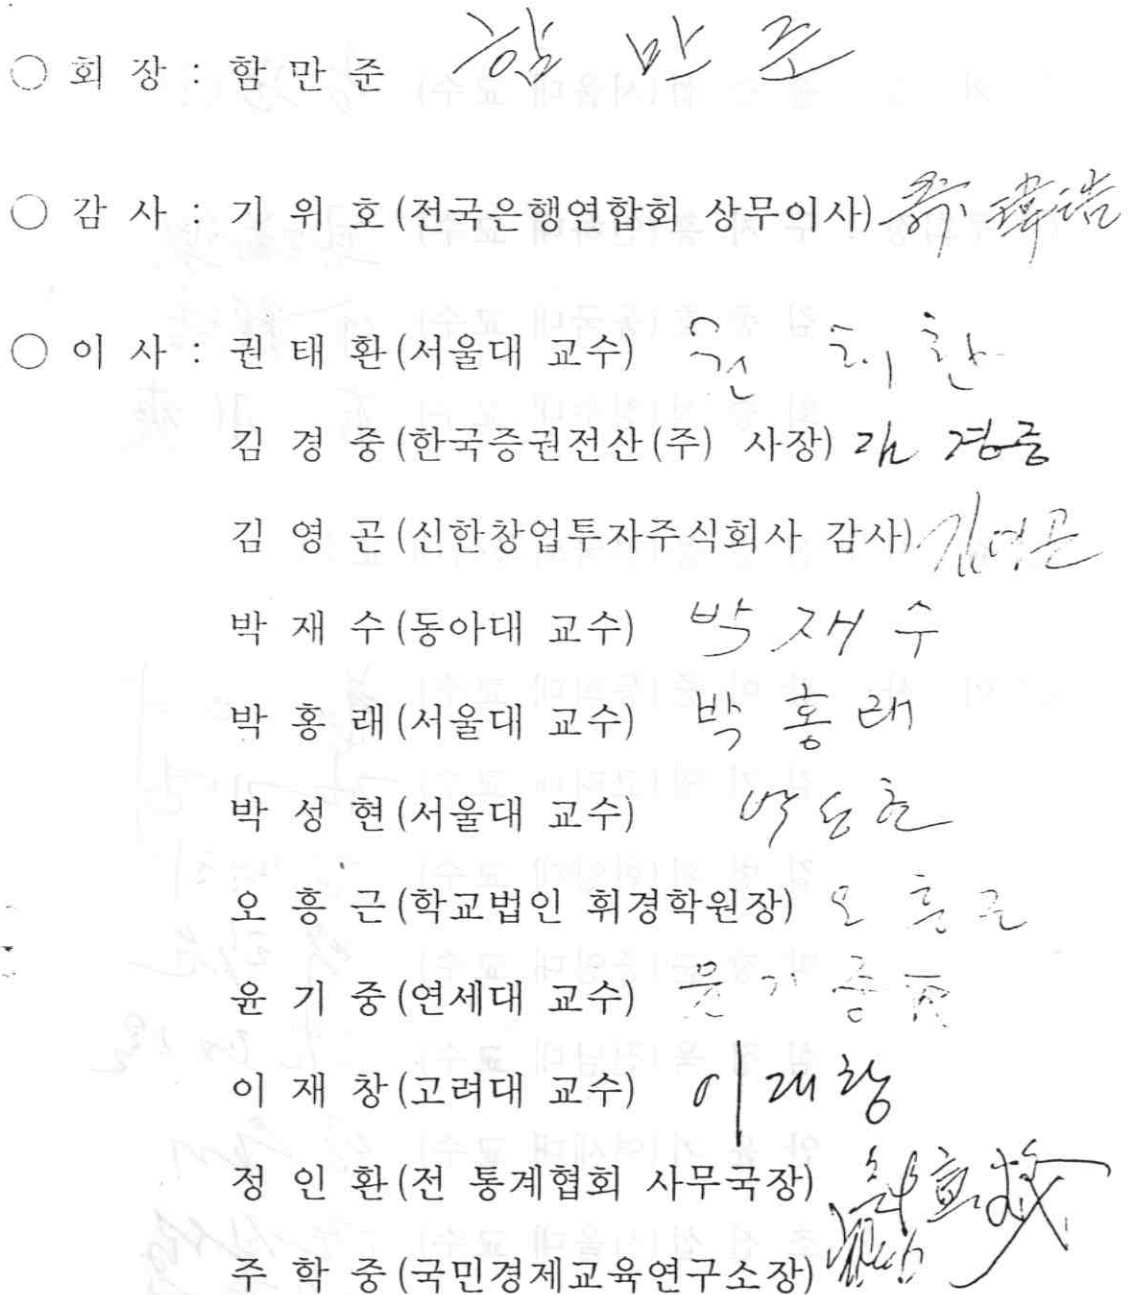 ○ 회 장 : 함 만 준 함 만 준
○ 감 사 : 기 위 호 (전국은행연합회 상무이사)
○ 이 사 : 권 태 환 (서울대 교수) 권 태 환
김 경 중 (한국증권전산(주) 사장) 김 경중
김 영 곤 (신한창업투자주식회사 감사) 김영곤
박 재 수 (동아대 교수) 박 재 수
박 홍 래 (서울대 교수) 박 홍 래
박 성 현 (서울대 교수) 박 성 현
오 흥 근 (학교법인 휘경학원장) 오 흥 근
윤 기 중 (연세대 교수) 윤 기 중
이 재 창 (고려대 교수) 이 재 창
정 인 환 (전 통계협회 사무국장)
주 학 중 (국민경제교육연구소장)